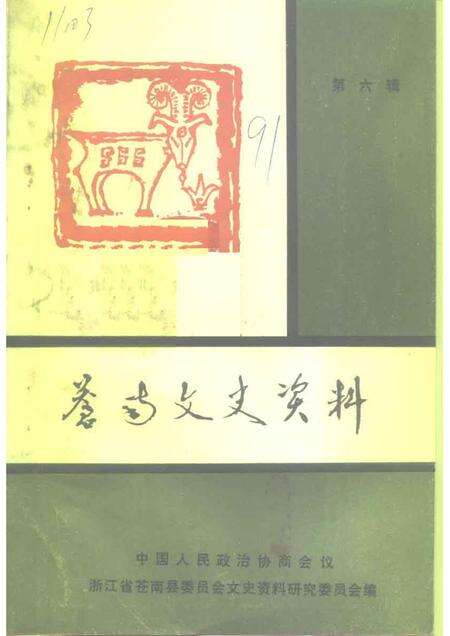 11.03
91
第六辑
蒼南文史资料
中国人民政治协商会议
浙江省苍南县委员会文史资料研究委员会编